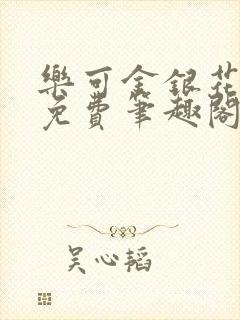 樂可金銀花
免費筆趣閣
吴心韬